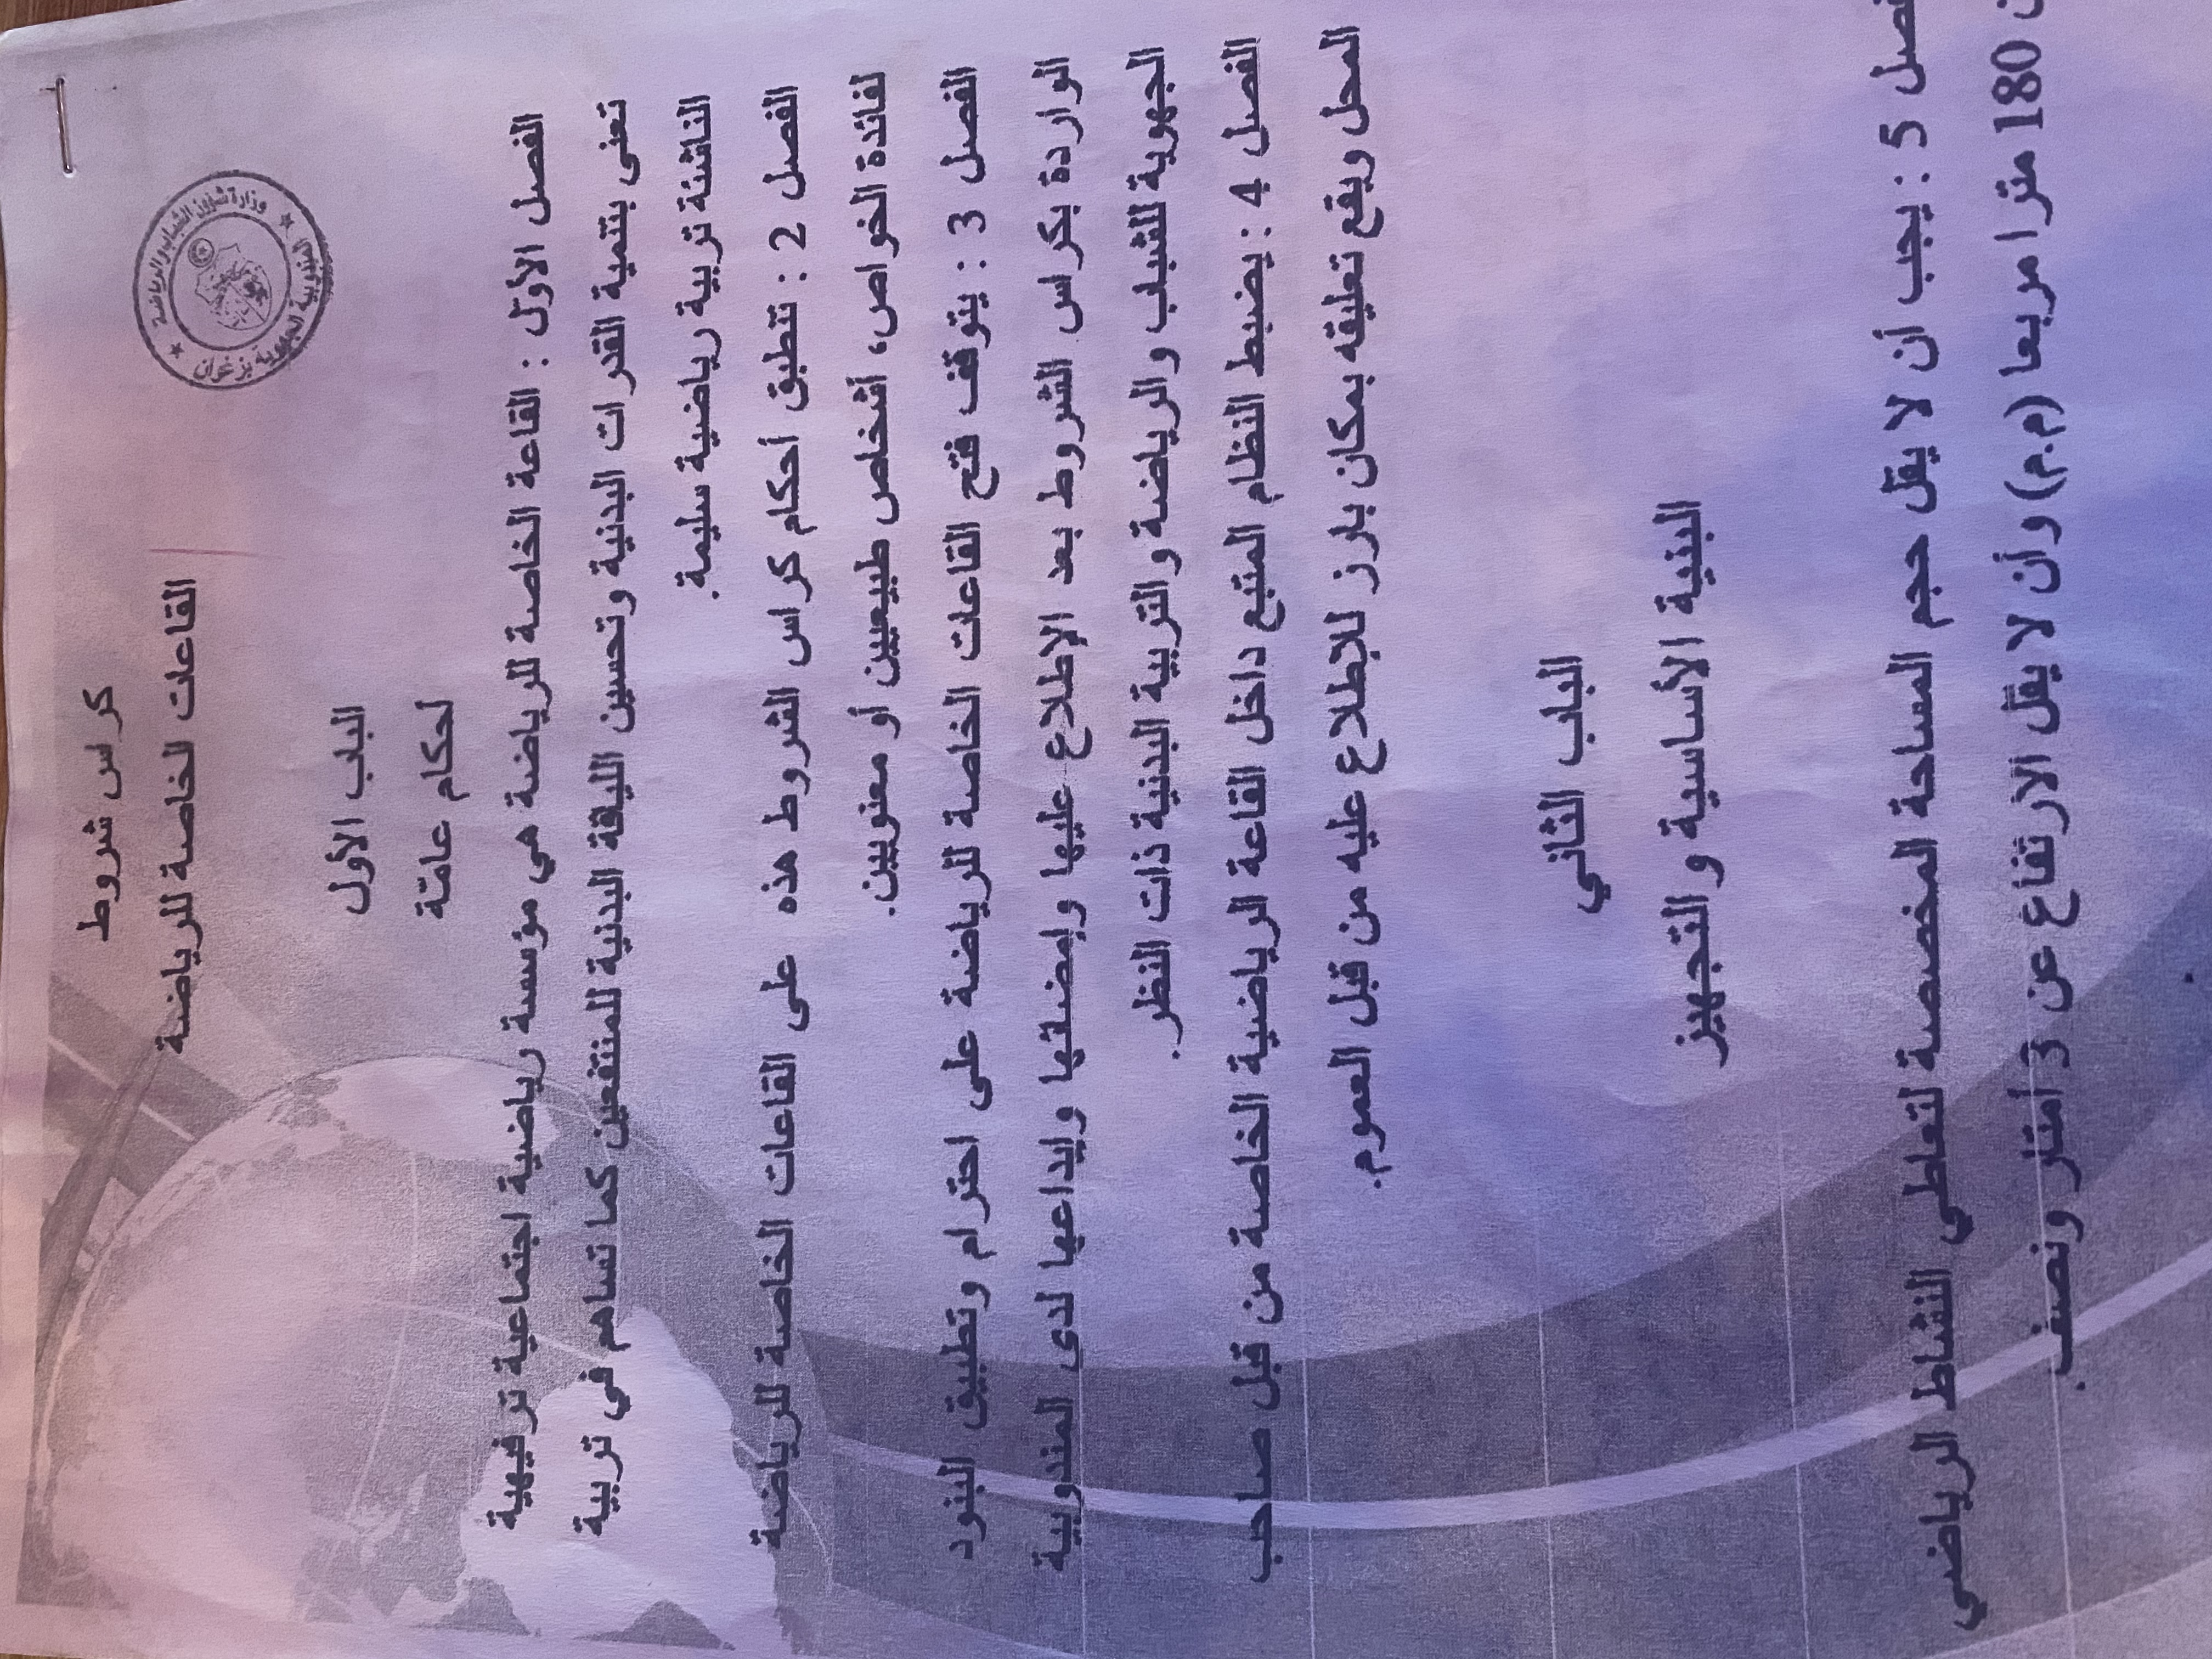 كراس شروط
القاعات الخاصة للرياضة
وزارة شؤون الشباب والرياضة
المندوبية الجهوية بزغوان
الباب الأول
أحكام عامة
الفصل الأول : القاعة الخاصة للرياضة هي مؤسسة رياضية اجتماعية ترفيهية
تعنى بتنمية القدرات البدنية وتحسين اللياقة البدنية للمنتفعين كما تساهم في تربية
الناشئة تربية رياضية سليمة.
الفصل 2 : تنطبق أحكام كراس الشروط هذه على القاعات الخاصة للرياضة
لفائدة الخواص، أشخاص طبيعيين أو معنويين.
الفصل 3 : يتوقف فتح القاعات الخاصة للرياضة على احترام وتطبيق البنود
الواردة بكراس الشروط بعد الإطلاع عليها وإمضائها وإيداعها لدى المندوبية
الجهوية للشباب والرياضة و التربية البدنية ذات النظر.
الفصل 4 : يضبط النظام المتبع داخل القاعة الرياضية الخاصة من قبل صاحب
المحل ويقع تعليقه بمكان بارز للإطلاع عليه من قبل العموم.
الباب الثاني
البنية الأساسية و التجهيز
فصل 5 : يجب أن لا يقل حجم المساحة المخصصة لتعاطي النشاط الرياضي
180 مترا مربعا (م.م) وأن لا يقل الارتفاع عن 3 أمتار ونصف.